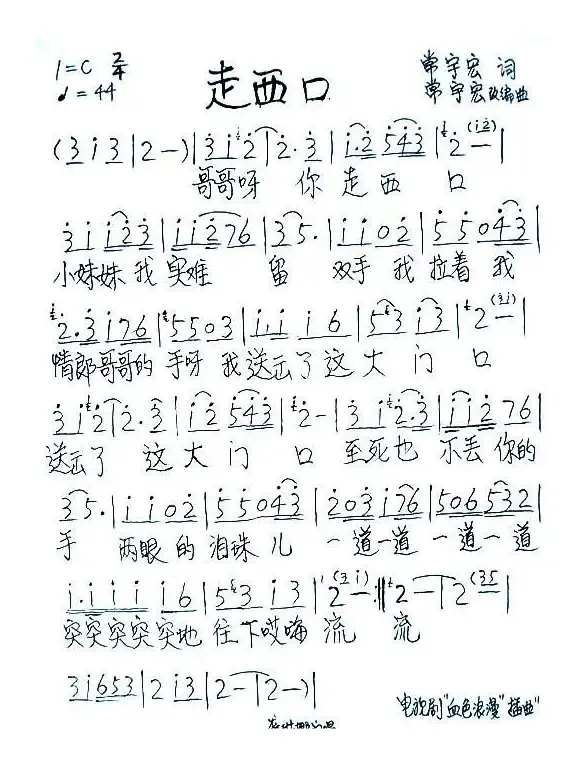 1=C 2/4
♩=44
走西口
常宇宏 词
常宇宏 改编曲
(3 i 3 | 2 — ) | 3 i 2 | 2· 3 | i·2 543 | 2 — (i 2) |
哥哥呀 你 走 西 口
3 i i23 | ii276 | 35· | i i 0 2 | 5 5 0 4 3 |
小妹妹 我 实难 留 双手 我 拉着 我
2·3 i76 | 5503 | i·i i 6 | 53 i3 | 2 — (3 i) |
情郎哥哥的 手呀 我 送云了 这 大 门 口
3 i2 | 2·3 | i2 543 | 2 - | 3 i2·3 | ii276 |
送云了 这 大 门 口 至死也 不丢 你的
35· | i i 0 2 | 5 5 0 4 3 | 203 i76 | 506 532 |
手 两眼 的 泪珠 儿 一道一道 一道一道
i·i i i i6 | 53 i 3 | 2 — (3 i) :‖ 2 — | 2 (35 |
突突突突突地 往下哎嗨 流 流
3i653 | 2 i3 | 2 — | 2 —) |
电视剧"血色浪漫"插曲"